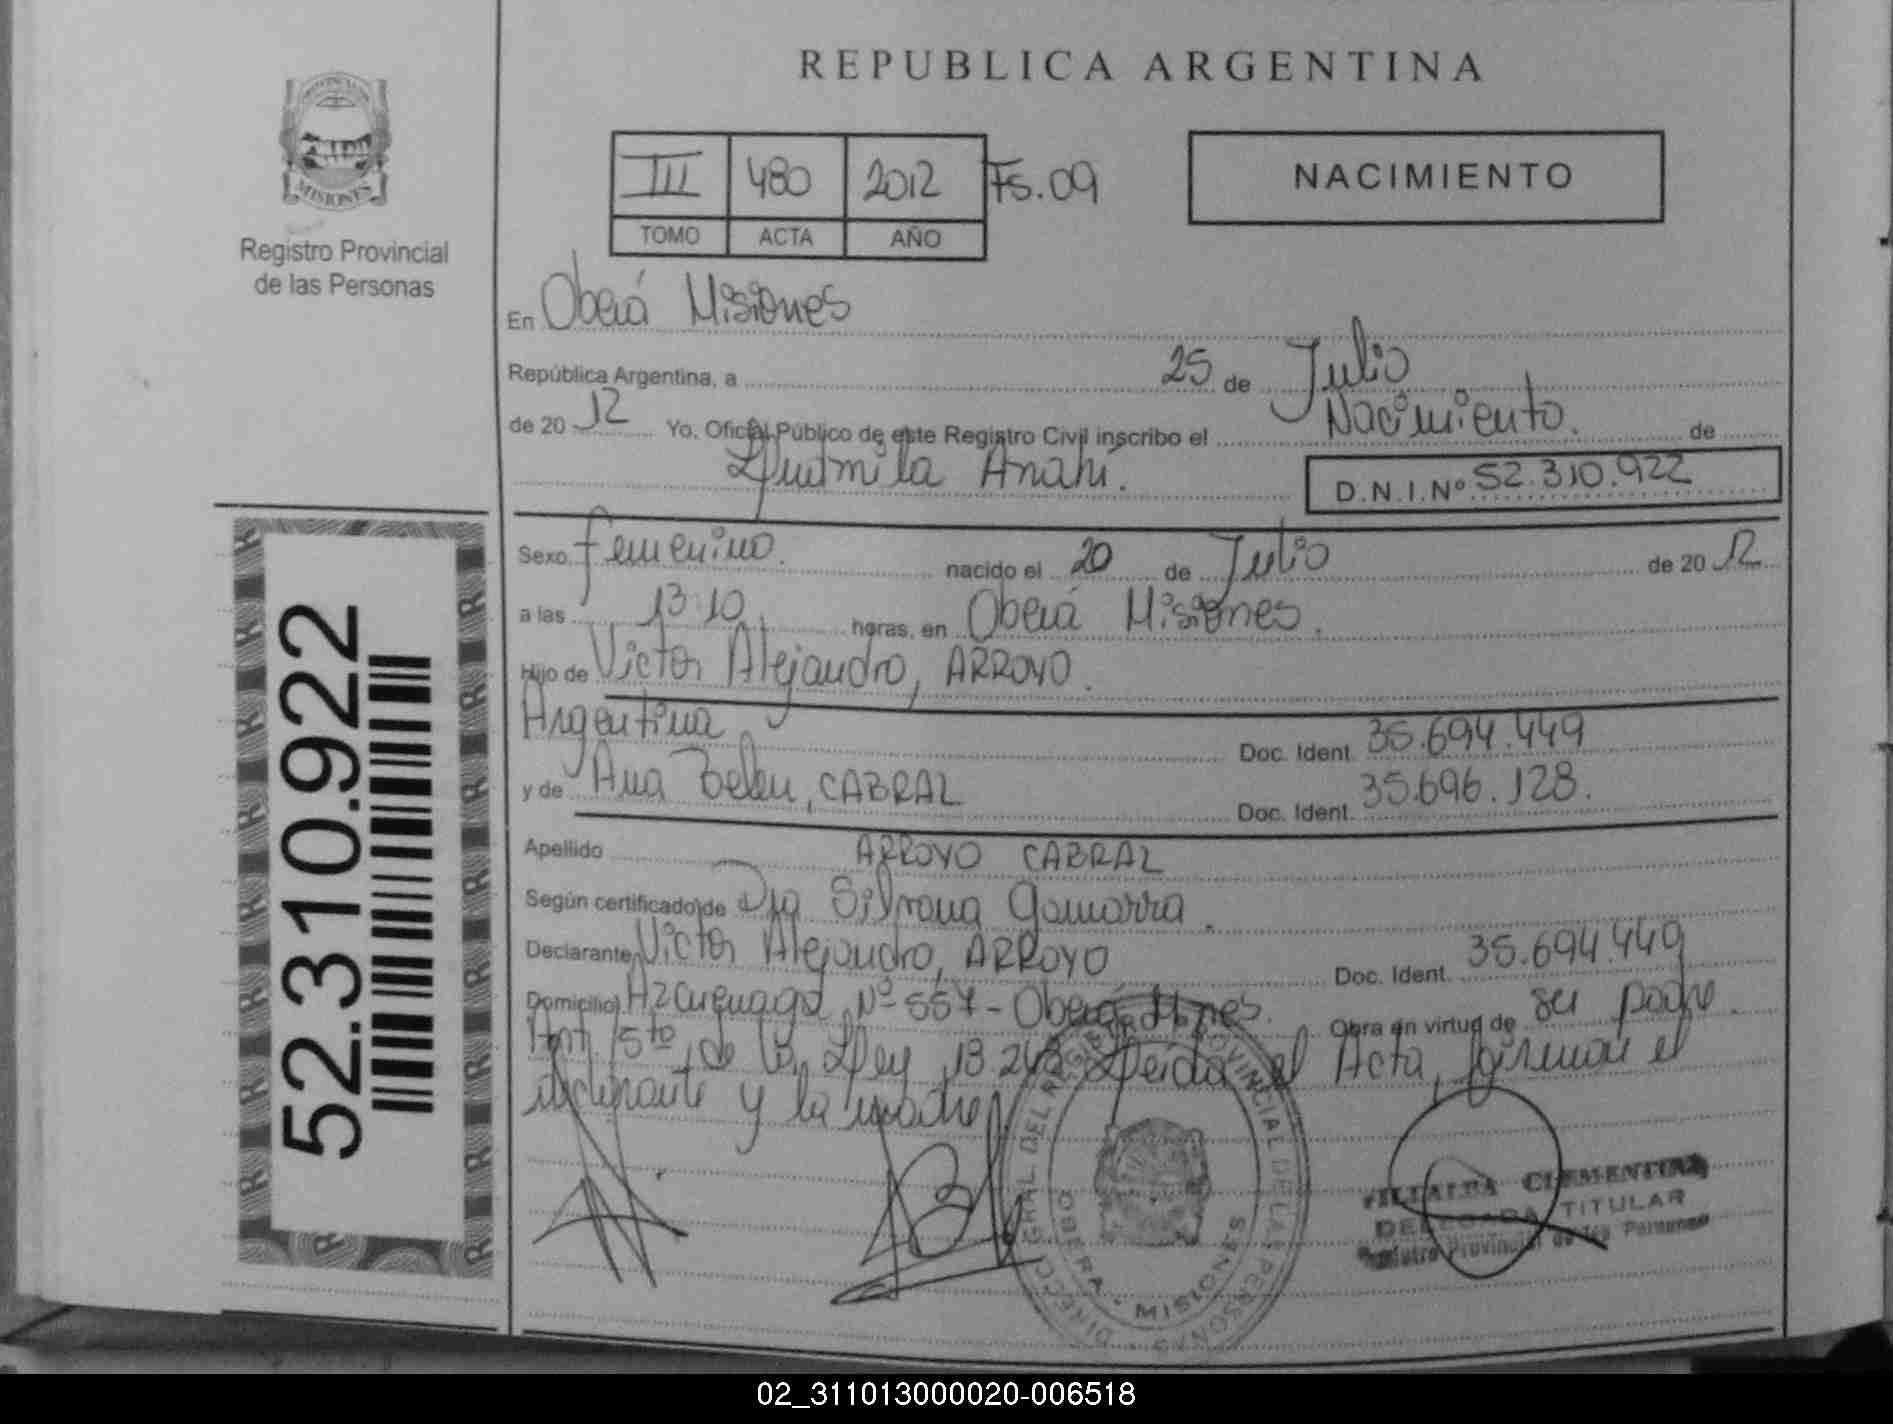 REPUBLICA ARGENTINA
MISIONES
Registro Provincial
de las Personas
III 480 2012 Fs.09
TOMO ACTA AÑO
NACIMIENTO
En Oberá Misiones
República Argentina, a 25 de Julio
de 20 12 Yo, Oficial Público de este Registro Civil inscribo el Nacimiento. de
Ludmila Anahí. D.N.I.Nº 52.310.922
Sexo femenino. nacido el 20 de Julio de 20 12
a las 13:10 horas, en Oberá Misiones.
Hijo de Victor Alejandro, ARROYO.
Argentina Doc. Ident. 35.694.449
y de Ana Belen, CABRAL Doc. Ident. 35.696.128.
Apellido ARROYO CABRAL
Según certificado de Dra Silvana Gamarra.
Declarante Victor Alejandro, ARROYO Doc. Ident. 35.694.449
Domicilio Azcuenaga Nº 557 - Oberá Mnes. Obra en virtud de ser padre.
Art. 5to de la Ley 13.243 Leida el Acta, firman el
declarante y la madre
52.310.922
DIRECC. GRAL. DEL REGISTRO PROVINCIAL DE LAS PERSONAS
OBERA - MISIONES
VILLALBA CLEMENTINA
DELEGADA TITULAR
Registro Provincial de las Personas
02_311013000020-006518